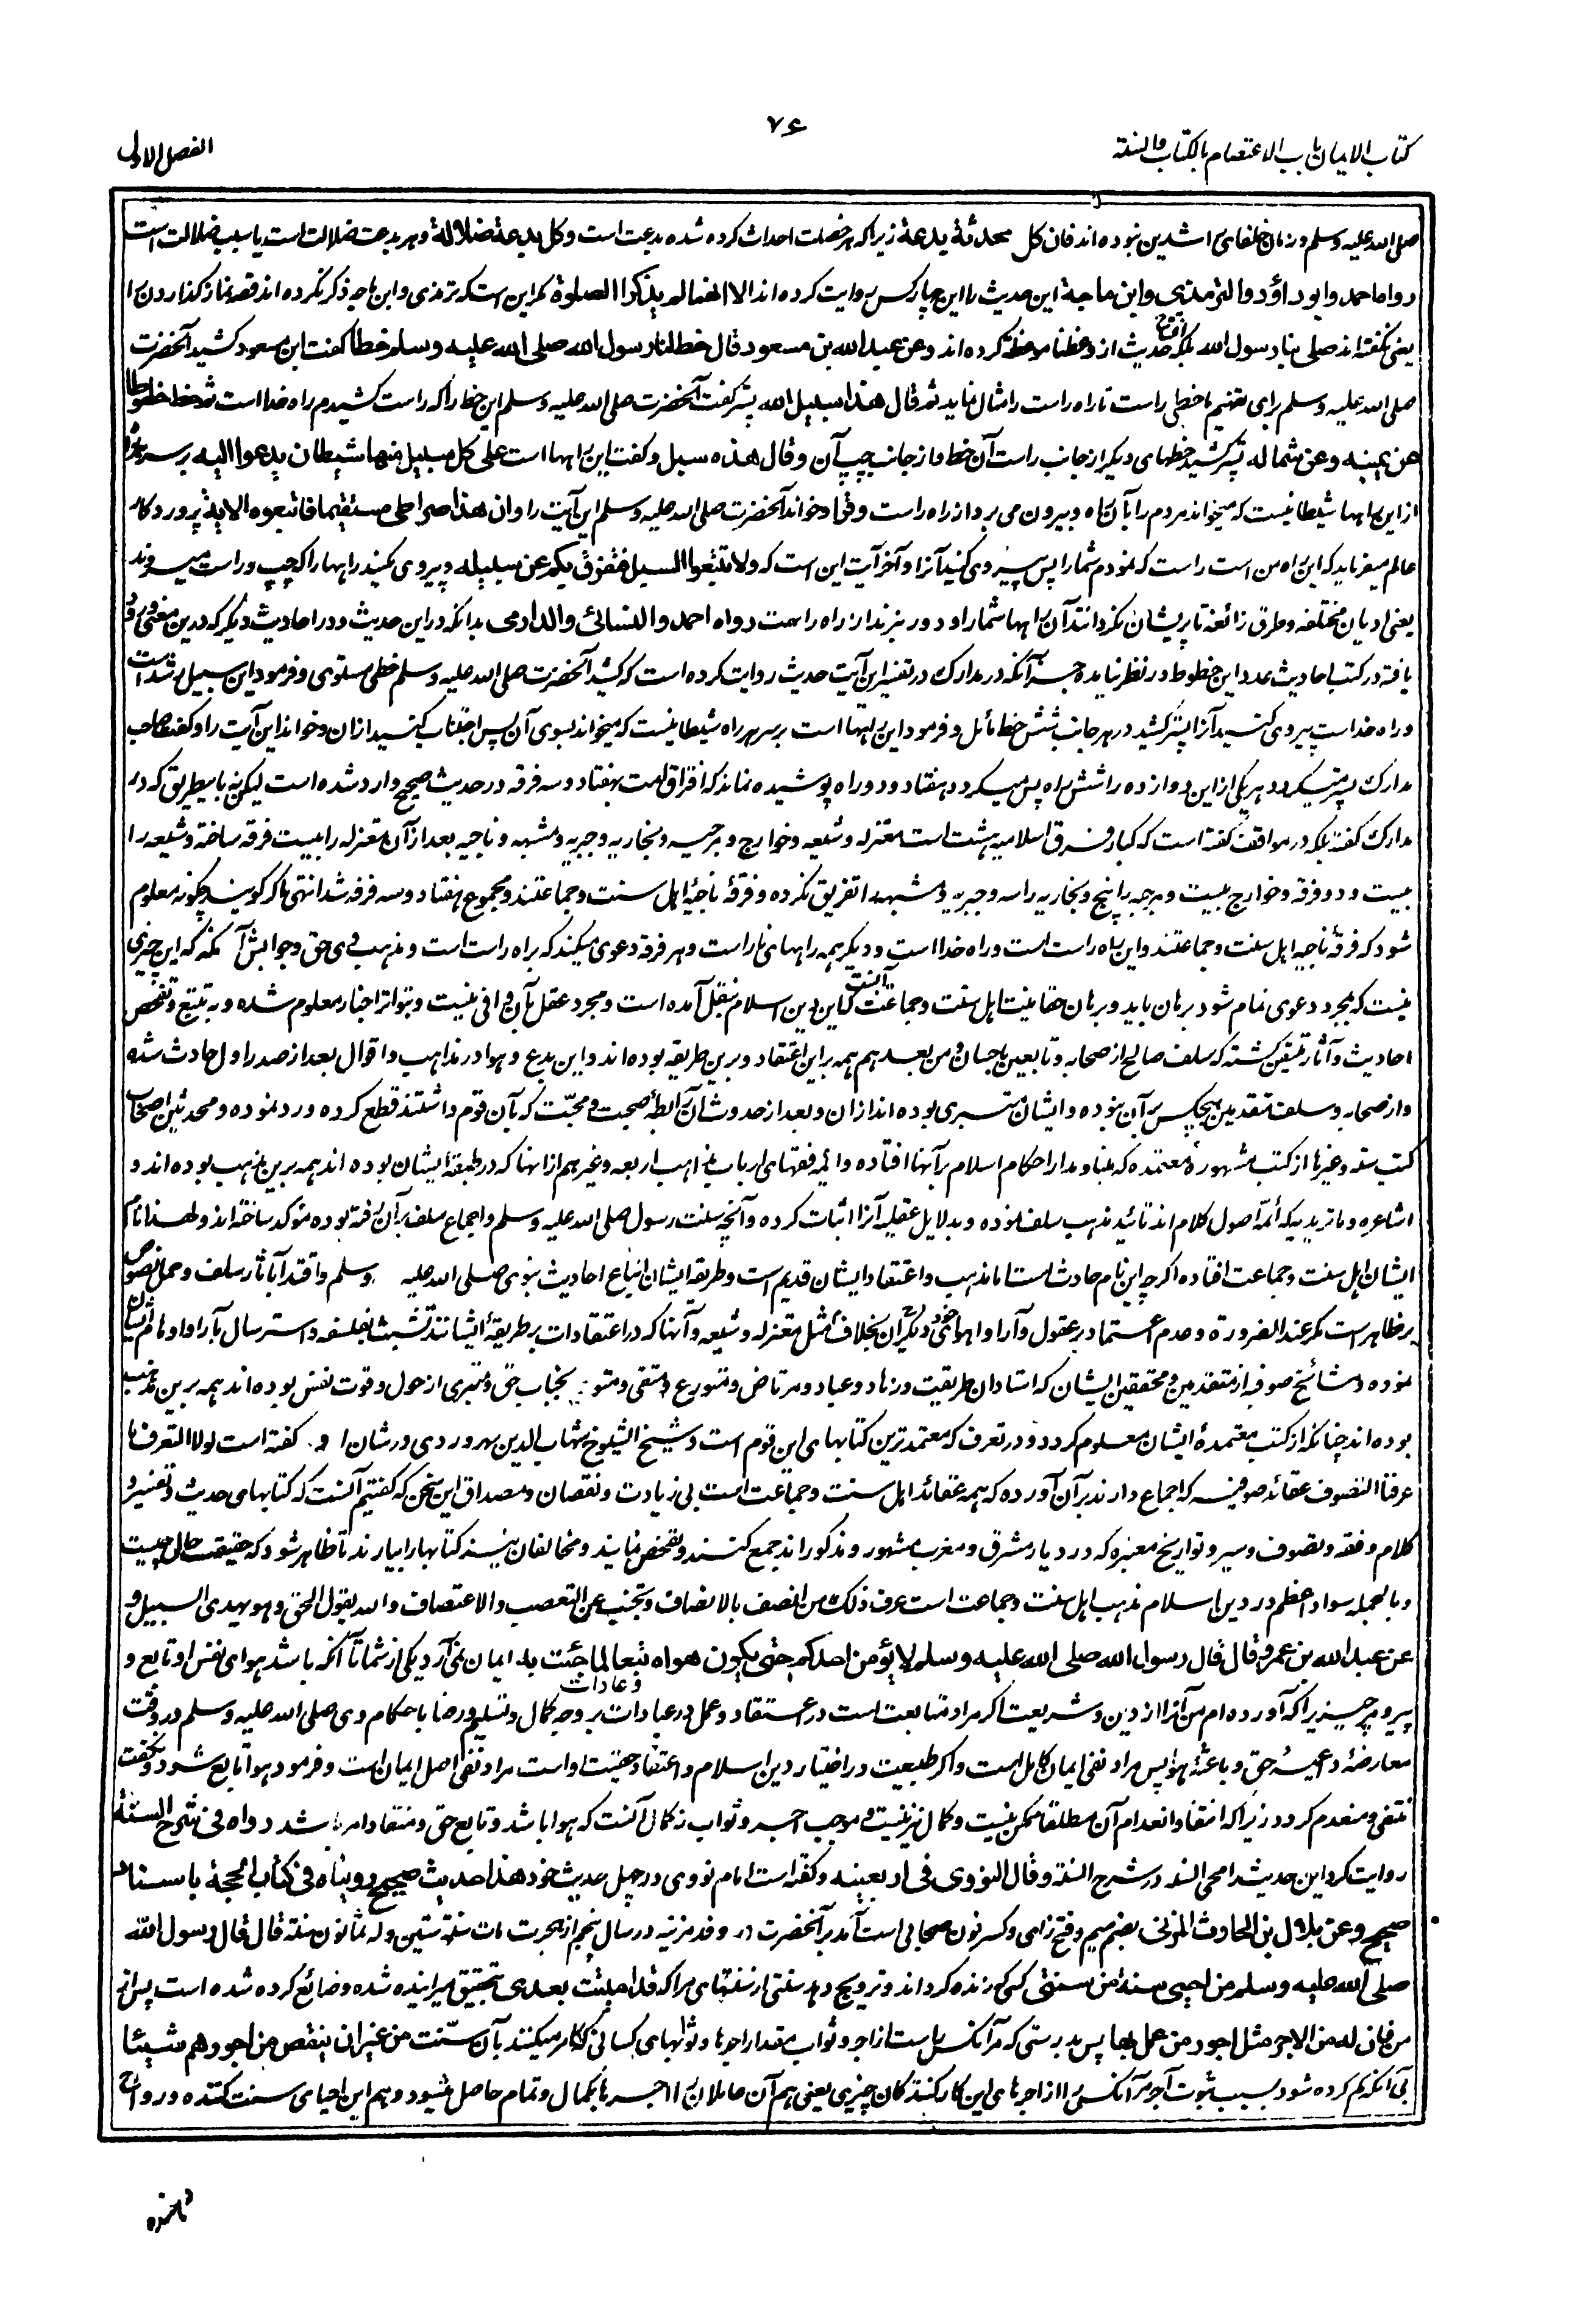 ۷۶
کتاب الایمان باب الاعتصام بالکتاب والسنة
الفصل الاول
صلی الله علیه وسلم و زمان خلفای راشدین نبوده اند فان کل محدثة بدعة زیرا که هر خصلت احداث کرده شده بدعت است و کل بدعة ضلالة و هر بدعت ضلالت است یا سبب ضلالت است
رواه احمد وابوداؤد والترمذی وابن ماجة این حدیث را این چهار کس روایت کرده اند الا انهما لم یذکرا الصلوة مگر این است که ترمذی و ابن ماجه ذکر نکرده اند قصه نماز گذاردن را
یعنی نگفته اند صلی بنا رسول الله بلکه افتتاح حدیث از وعظنا موعظة کرده اند وعن عبد الله بن مسعود قال خط لنا رسول الله صلی الله علیه وسلم خطا گفت ابن مسعود کشید آنحضرت
صلی الله علیه وسلم برای تفهیم ما خطی راست تا راه راست را مثال نماید ثم قال هذا سبیل الله پستر گفت آنحضرت صلی الله علیه وسلم این خط را که راست کشیدم راه خدا است ثم خط خطوطا
عن یمینه وعن شماله پستر کشید خطهای دیگر از جانب راست آن خط و از جانب چپ آن وقال هذه سبل وگفت این راهها است علی کل سبیل منها شیطان یدعوا الیه بر سر هر
از این راهها شیطانیست که میخواند مردم را بآن راه و بیرون می برد از راه راست وقرأ و خواند آنحضرت صلی الله علیه وسلم این آیت را وان هذا صراطی مستقیما فاتبعوه الآیة پروردگار
عالم میفرماید که این راه من است راست که نمودم شما را پس پیروی کنید آنرا و آخر آیت این است که ولا تتبعوا السبل فتفرق بکم عن سبیله و پیروی مکنید راهها را که چپ و راست میروند
یعنی ادیان مختلفه و طرق زائغه تا پریشان نگردانند آن راهها شما را و دور نبرند از راه راست رواه احمد والنسائی والدارمی بدانکه در این حدیث و در احادیث دیگر که درین معنی
یافته در کتب احادیث عدد این خطوط در نظر نیامده جز آنکه در مدارک در تفسیر این آیت حدیث روایت کرده است که کشید آنحضرت صلی الله علیه وسلم خطی مستوی و فرمود این سبیل رشد است
و راه خداست پیروی کنید آنرا پستر کشید در هر جانب شش خط مائل و فرمود این راهها است بر سر هر راه شیطانیست که میخواند بسوی آن پس اجتناب کنید ازان و خواند این آیت را و گفت صاحب
مدارک پستر میگردد هر یکی از این دوازده راه شش راه پس میگردد هفتاد و دو راه پوشیده نماند که افتراق امت بهفتاد و سه فرقه در حدیث صحیح وارد شده است لیکن نه باین طریق که در
مدارک گفته بلکه در مواقف گفته است که کبار فرق اسلامیه هشت است معتزله و شیعه و خوارج و مرجیه و نجاریه و جبریه و مشبهه و ناجیه بعد ازآن معتزله را بیست فرقه ساخته و شیعه را
بیست و دو فرقه و خوارج بیست و مرجیه را پنج و نجاریه را سه و جبریه و مشبهه را تفریق نکرده و فرقه ناجیه اهل سنت و جماعتند و مجموع هفتاد و سه فرقه شد انتهی اگر گویند چگونه معلوم
شود که فرقه ناجیه اهل سنت و جماعتند و این راه راست است و راه خدا است و دیگر همه راههای ناراست و هر فرقه دعوی میکند که براه راست است و مذهب وی حق و جوابش آنکه این چیزی
نیست که بمجرد دعوی تمام شود برهان باید و برهان حقانیت اهل سنت و جماعت آنست که این دین اسلام بنقل آمده است و مجرد عقل بآن وافی نیست و بتواتر اخبار معلوم شده و به تتبع و تفحص
احادیث و آثار متیقن گشته که سلف صالح از صحابه و تابعین باحسان و من بعدهم همه براین اعتقاد و برین طریقه بوده اند و این بدع و هوا در مذاهب و اقوال بعد از صدر اول حادث شده
و از صحابه و سلف متقدمین هیچکس بر آن نبوده و ایشان متبری بوده اند ازان و بعد از حدوث آن رابطه صحبت و محبت که بآن قوم داشتند قطع کرده و رد نموده و محدثین اصحاب
کتب سته و غیرها از کتب مشهوره معتمده که بنا و مدار احکام اسلام بر آنها افتاده و ائمه فقهای ارباب مذاهب اربعه و غیرهم از آنها که در طبقه ایشان بوده اند همه برین مذهب بوده اند و
اشاعره و ماتریدیه که ائمه اصول کلام اند تائید مذهب سلف نموده و بدلایل عقلیه آنرا اثبات کرده و آنچه سنت رسول صلی الله علیه وسلم و اجماع سلف بر آن رفته بوده مؤکد ساخته اند و لهذا نام
ایشان اهل سنت و جماعت افتاده اگرچه این نام حادث است اما مذهب و اعتقاد ایشان قدیم است و طریقه ایشان اتباع احادیث نبوی صلی الله علیه وسلم و اقتدا بآثار سلف و حمل نصوص
بر ظاهر است مگر عند الضرورة و عدم اعتماد بر عقول و آراء و اهوای خود بخلاف دیگران مثل معتزله و شیعه و آنها که در اعتقادات بر طریقه ایشانند تشبث بفلسفه و استرسال بآراء و اوهام
نموده و مشائخ صوفیه از متقدمین و محققین ایشان که استادان طریقت و زهاد و عباد و مرتاض و متورع و متقی و متوجه بجناب حق و متبری از حول و قوت نفس بوده اند همه برین مذهب
بوده اند چنانکه از کتب معتمده ایشان معلوم گردد و در تعرف که معتمدترین کتابهای این قوم است و شیخ الشیوخ شهاب الدین سهروردی در شان او گفته است لولا التعرف ما
عرفنا التصوف عقائد صوفیه که اجماع دارند بر آن آورده که همه عقائد اهل سنت و جماعت است بی زیادت و نقصان و مصداق این سخن که گفتیم آنست که کتابهای حدیث و تفسیر و
کلام و فقه و تصوف و سیر و تواریخ معتبره که در دیار مشرق و مغرب مشهور و مذکور اند جمع کنند و تفحص نمایند و مخالفان نیز کتابها را بیارند تا ظاهر شود که حقیقت حال چیست
و بالجمله سواد اعظم در دین اسلام مذهب اهل سنت و جماعت است عرف ذلک من انصف بالانصاف و تجنب عن التعصب والاعتساف والله یقول الحق وهو یهدی السبیل و
عن عبد الله بن عمرو قال قال رسول الله صلی الله علیه وسلم لا یؤمن احدکم حتی یکون هواه تبعا لما جئت به ایمان نمی آرد یکی از شما تا آنکه باشد هوای نفس او تابع و
پیرو مر چیزیرا که آورده ام من آنرا از دین و شریعت اگر مراد متابعت است در اعتقاد و عمل در عبادات و عادات بر وجه کمال و تسلیم و رضا باحکام وی صلی الله علیه وسلم در وقت
معارضه داعیه حق و باعثه هوا پس مراد نفی ایمان کامل است و اگر طبیعت در اختیار دین اسلام و اعتقاد حقیت او است مراد نفی اصل ایمان است و فرمود هوا تابع شود و نگفت
منتفی و منعدم گردد زیرا که انتفا و انعدام آن مطلقا ممکن نیست و کمال نیز نیست و موجب اجر و ثواب نه کمال آنست که هوا باشد و تابع حق و منقاد امر باشد رواه فی شرح السنة
روایت کرد این حدیث را محی السنه در شرح السنة وقال النووی فی اربعینه و گفته است امام نووی در چهل حدیث خود هذا حدیث صحیح رویناه فی کتاب الحجة باسناد
صحیح وعن بلال بن الحارث المزنی بضم میم و فتح زای و کسر نون صحابی است آمد بر آنحضرت در وفد مزنیه در سال پنجم از هجرت مات سنة ستین وله ثمانون سنة قال قال رسول الله
صلی الله علیه وسلم من احیی سنة من سنتی کسی که زنده گرداند و ترویج دهد سنتی از سنتهای مرا که قد امیتت بعدی بتحقیق میرانیده شده و ضائع کرده شده است پس از
من فان له من الاجر مثل اجور من عمل بها پس بدرستی که مر آنکس راست از اجر و ثواب مقدار اجرها و ثوابهای کسانی که کار میکنند بآن سنت من غیر ان ینقص من اجورهم شیئا
بی آنکه کم کرده شود بسبب ثبوت اجر مر آنکس را از اجرهای این کارکنندگان چیزی یعنی هم آن عاملان را اجرها بکمال و تمام حاصل میشود و هم این احیای سنت کننده و رواج